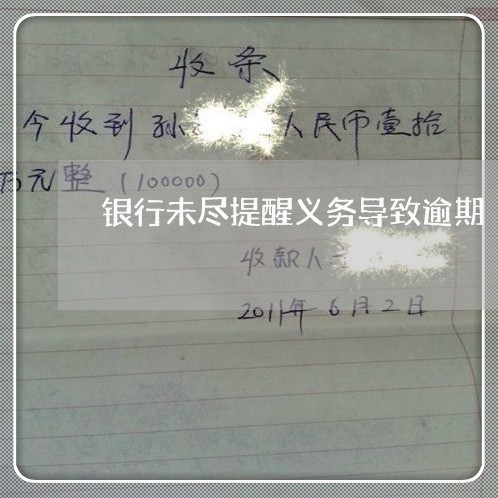 收条
今收到孙 人民币壹拾
万元整（100000）
银行未尽提醒义务导致逾期
收款人
2011年6月2日